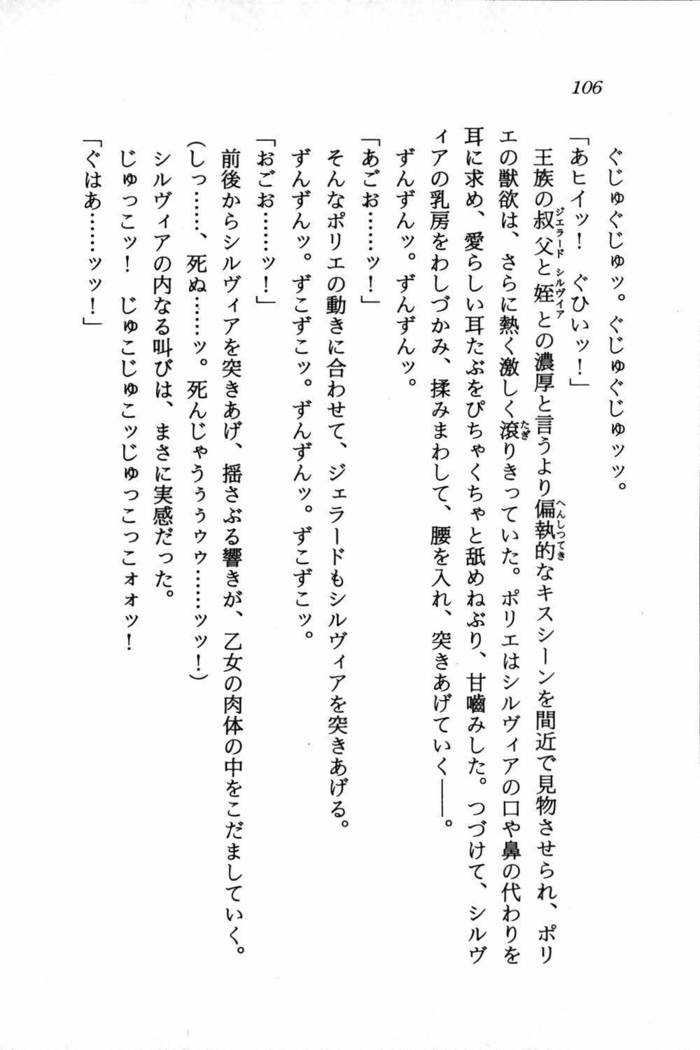 106
ぐじゅぐじゅッ。ぐじゅぐじゅッッ。
「あヒイッ！　ぐひいッ！」
王族の叔父と姪との濃厚と言うより偏執的なキスシーンを間近で見物させられ、ポリ
エの獣欲は、さらに熱く激しく滾りきっていた。ポリエはシルヴィアの口や鼻の代わりを
耳に求め、愛らしい耳たぶをぴちゃくちゃと舐めねぶり、甘嚙みした。つづけて、シルヴ
ィアの乳房をわしづかみ、揉みまわして、腰を入れ、突きあげていく――。
ずんずんッ。ずんずんッ。
「あごお……ッ！」
そんなポリエの動きに合わせて、ジェラードもシルヴィアを突きあげる。
ずんずんッ。ずこずこッ。ずんずんッ。ずこずこッ。
「おごお……ッ！」
前後からシルヴィアを突きあげ、揺さぶる響きが、乙女の肉体の中をこだましていく。
(しっ……、死ぬ……ッ。死んじゃうぅぅゥゥ……ッッ！)
シルヴィアの内なる叫びは、まさに実感だった。
じゅっこッ！　じゅこじゅこッじゅっこっこォォッ！
「ぐはあ……ッッ！」